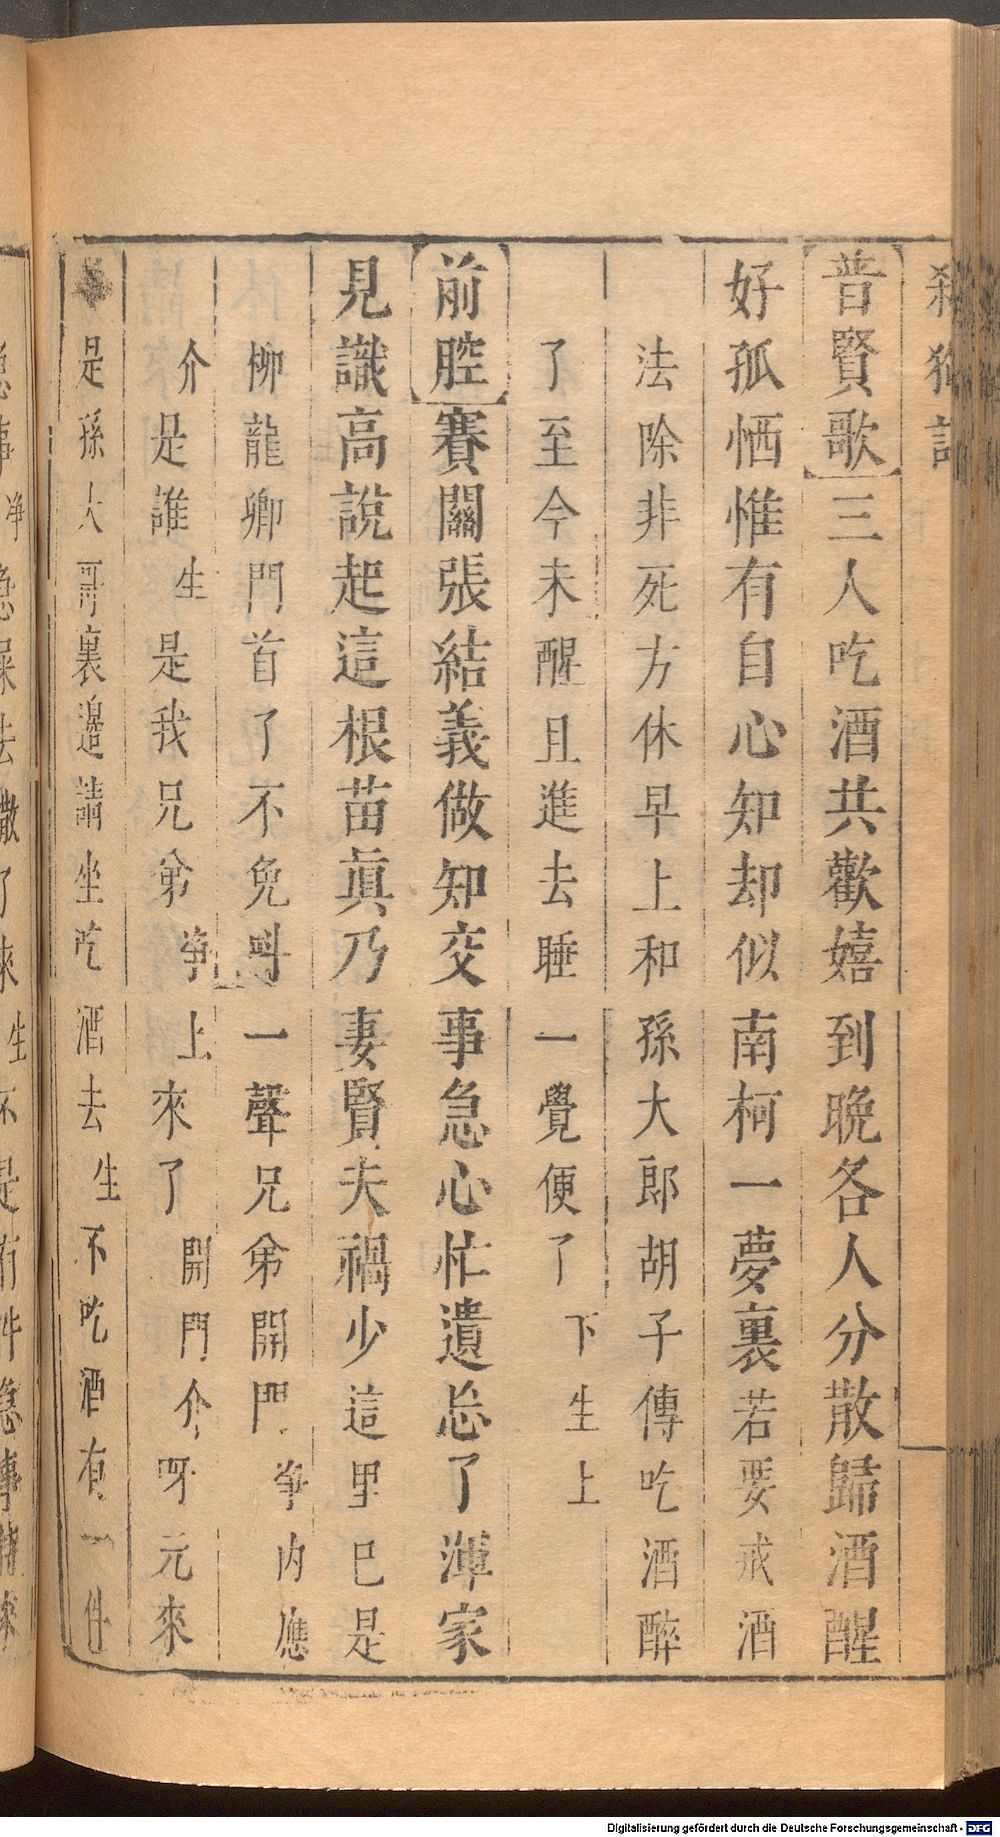 殺狗記
普賢歌三人吃酒共歡嬉到晚各人分散歸酒醒
好孤恓惟有自心知却似南柯一夢裏若要戒酒
法除非死方休早上和孫大郎胡子傳吃酒醉
了至今未醒且進去睡一覺便了下生上
前腔賽關張結義做知交事急心忙遺忘了渾家
見識高說起這根苗眞乃妻賢夫禍少這里已是
柳龍卿門首了不免呌一聲兄弟開門淨內應
介是誰生是我兄弟淨上來了開門介呀元來
是孫大哥裏邊請坐吃酒去生不吃酒有一件
急事淨急屎去撒了來生不是有件急事特來
Digitalisierung gefördert durch die Deutsche Forschungsgemeinschaft - DFG